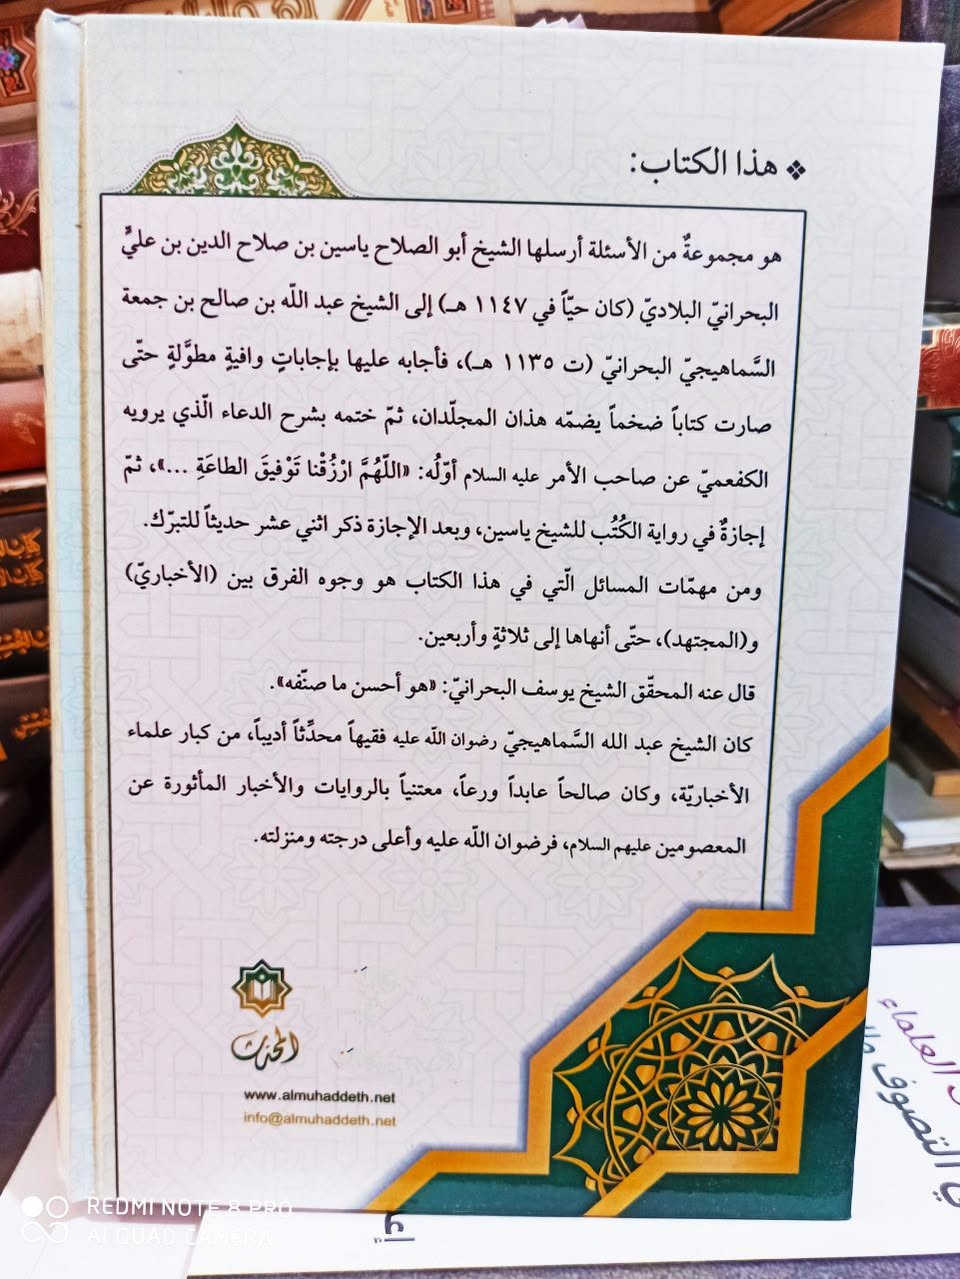 هذا الكتاب:
هو مجموعةٌ من الأسئلة أرسلها الشيخ أبو الصلاح ياسين بن صلاح الدين بن عليٍّ
البحرانيّ البلاديّ (كان حيّاً في ١١٤٧ هـ) إلى الشيخ عبد اللّه بن صالح بن جمعة
السَّماهيجيّ البحرانيّ (ت ١١٣٥ هـ)، فأجابه عليها بإجاباتٍ وافيةٍ مطوَّلةٍ حتّى
صارت كتاباً ضخماً يضمّه هذان المجلّدان، ثمّ ختمه بشرح الدعاء الّذي يرويه
الكفعميّ عن صاحب الأمر عليه السلام أوّلُه: «اللّهُمَّ ارْزُقْنا تَوْفيقَ الطاعَةِ ...»، ثمّ
إجازةٌ في رواية الكُتُب للشيخ ياسين، وبعد الإجازة ذكر اثني عشر حديثاً للتبرّك.
ومن مهمّات المسائل الّتي في هذا الكتاب هو وجوه الفرق بين (الأخباريّ)
و(المجتهد)، حتّى أنهاها إلى ثلاثةٍ وأربعين.
قال عنه المحقّق الشيخ يوسف البحرانيّ: «هو أحسن ما صنّفه».
كان الشيخ عبد الله السَّماهيجيّ رضوان اللّه عليه فقيهاً محدِّثاً أديباً، من كبار علماء
الأخباريّة، وكان صالحاً عابداً ورعاً، معتنياً بالروايات والأخبار المأثورة عن
المعصومين عليهم السلام، فرضوان اللّه عليه وأعلى درجته ومنزلته.
المحدث
www.almuhaddeth.net
info@almuhaddeth.net
العلماء
التصوف
REDMI NOTE 8 PRO
AI QUAD CAMERA